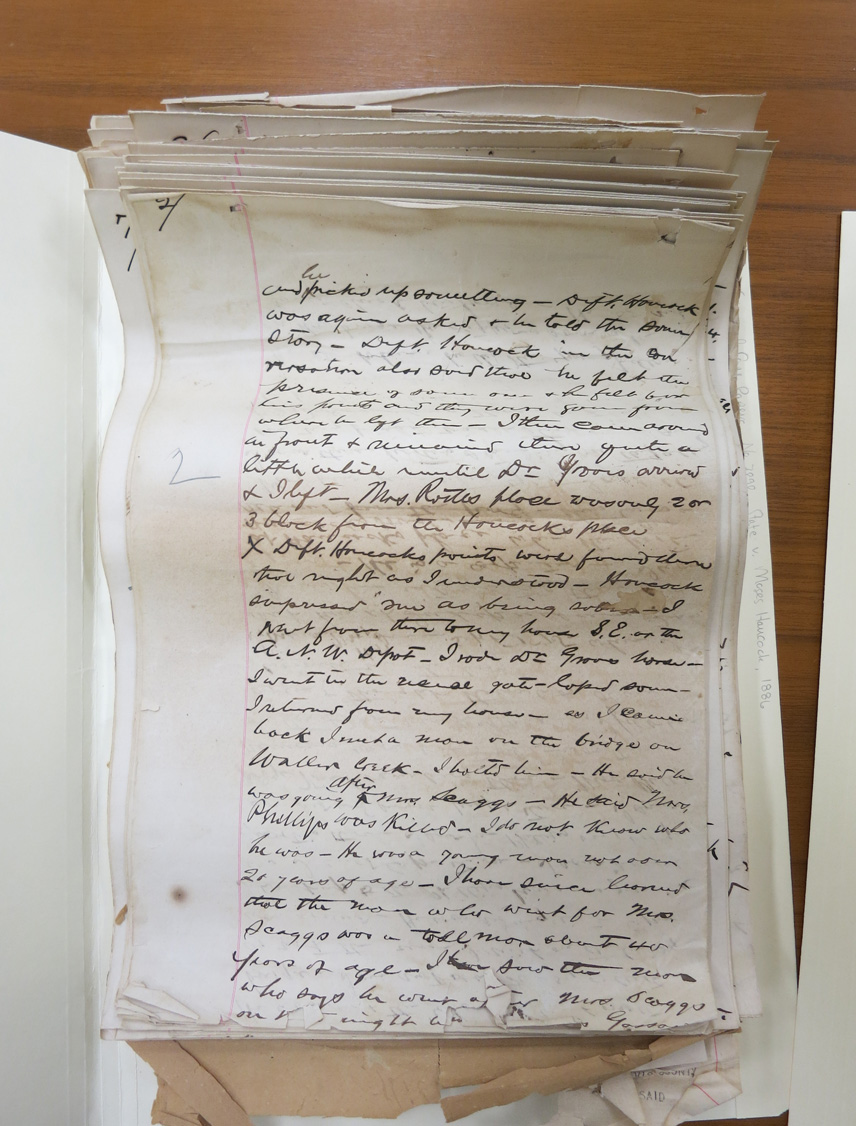 2/
he
and picked up something – Deft. Hancock
was again asked & he told the same
story – Deft. Hancock in the con
versation also said that he felt the
presence of some one & he felt for
his pants and they were gone from
where he left them – I then came around
in front & remained there quite a
little while until Dr Graves arrived
& I left – Mrs. place was only 2 or
3 block from the Hancocks place
X Deft. Hancocks pants were found there
that night as I understood – Hancock
impressed me as being sober – I
went from there to my house S.E. of the
A. N. W. Depot – I rode Dr Graves horse –
I went in the gate – loped some –
I returned from my house – as I came
back I met a man on the bridge on
Waller Creek – I halted him – He said he
after
was going Mrs. Scaggs – He said Mrs.
Phillips was Killed – I do not know who
he was – He was a young man not over
20 years of age – I have since learned
that the man who went for Mrs.
Scaggs was a tall man about 40
years of age – I saw the man
who says he went after Mrs. Scaggs
on night
2
State v. Moses Hancock, 1886
SAID